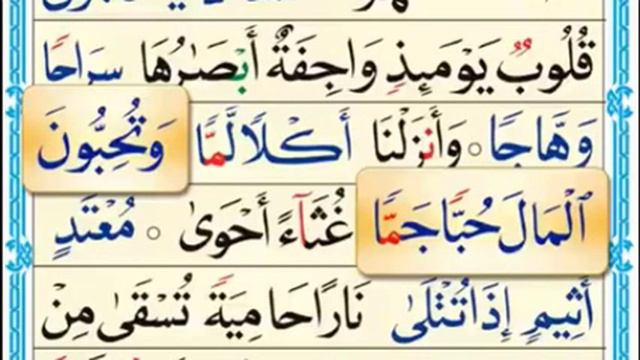 قُلُوبٌ يَوْمَئِذٍ وَاجِفَةٌ أَبْصَٰرُهَا سِرَاجًا
وَهَّاجًا ۝ وَأَنزَلْنَا أَكْلًا لَّمًّا وَتُحِبُّونَ
ٱلْمَالَ حُبًّا جَمًّا غُثَآءً أَحْوَىٰ ۝ مُعْتَدٍ
أَثِيمٍ إِذَا تُتْلَىٰ نَارًا حَامِيَةً تُسْقَىٰ مِنْ